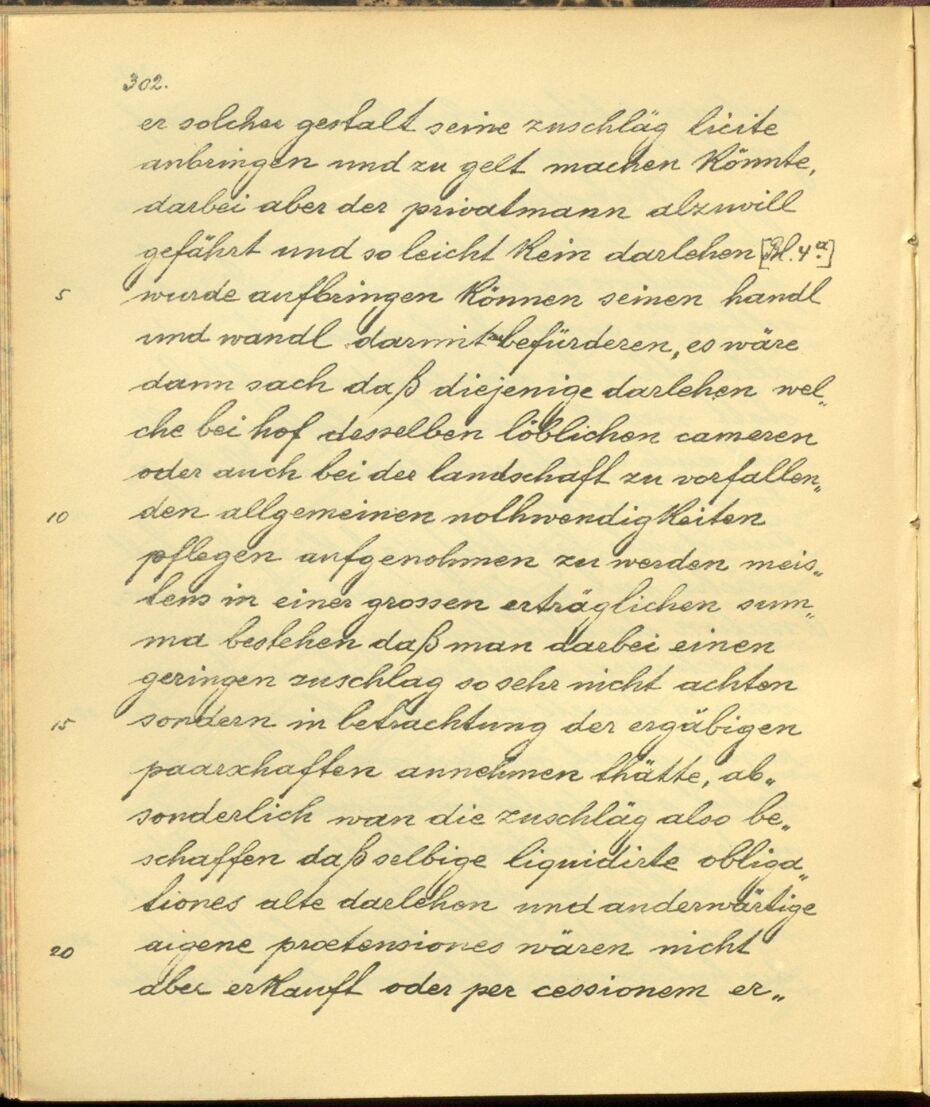 302.
er solcher gestalt seine zuschläg licite
anbringen und zu gelt machen könnte,
darbei aber der privatmann alzuvill
gefährt und so leicht kein darlehen [Bl. 4a.]
5 wurde aufbringen können seinen handl
und wandl darmit zu befürderen, es wäre
dann sach daß diejenige darlehen wel„
che bei hof desselben löblichen cameren
oder auch bei der landschaft zu vorfallen„
10 den allgemeinen nothwendigkeiten
pflegen aufgenohmen zu werden meis„
tens in einer grossen erträglichen sum„
ma bestehen daß man darbei einen
geringen zuschlag so sehr nicht achten
15 sondern in betrachtung der ergäbigen
paarschaften annehmen thätte, ab„
sonderlich wan die zuschläg also be„
schaffen daß selbige liquidirte obliga„
tiones alte darlehen und anderwärtige
20 aigene prætensiones wären nicht
aber erkauft oder per cessionem er„